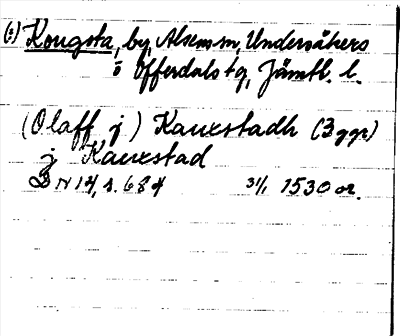 (s) Kougsta, by, Alsens sn, Undersåkers
o Offerdals tg, Jämtl. l.
(Olaff j) Kauxstadh (3 ggr)
j Kauxstad
DN 14, s. 684 31/1 1530 or.